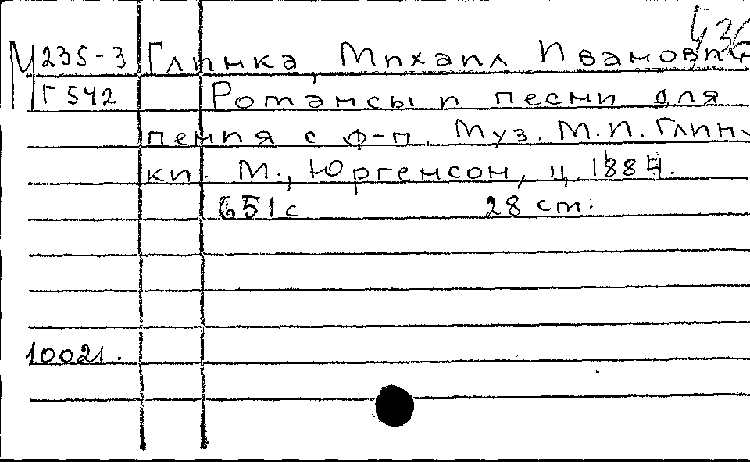 М235-3 Глинка, Михаил Иванович
Г542 Романсы и песни для
пения с ф-п. Муз. М.И. Глин-
ки. М., Юргенсон, ц. 1884.
651с 28 cm.
10021.